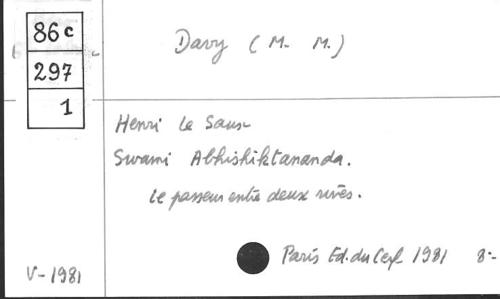 86c
297
1
Davy (M. M.)
Henri le Saux
Swami Abhishiktananda.
le passeur entre deux rives.
Paris Ed. du Cerf 1981 8:-
V-1981